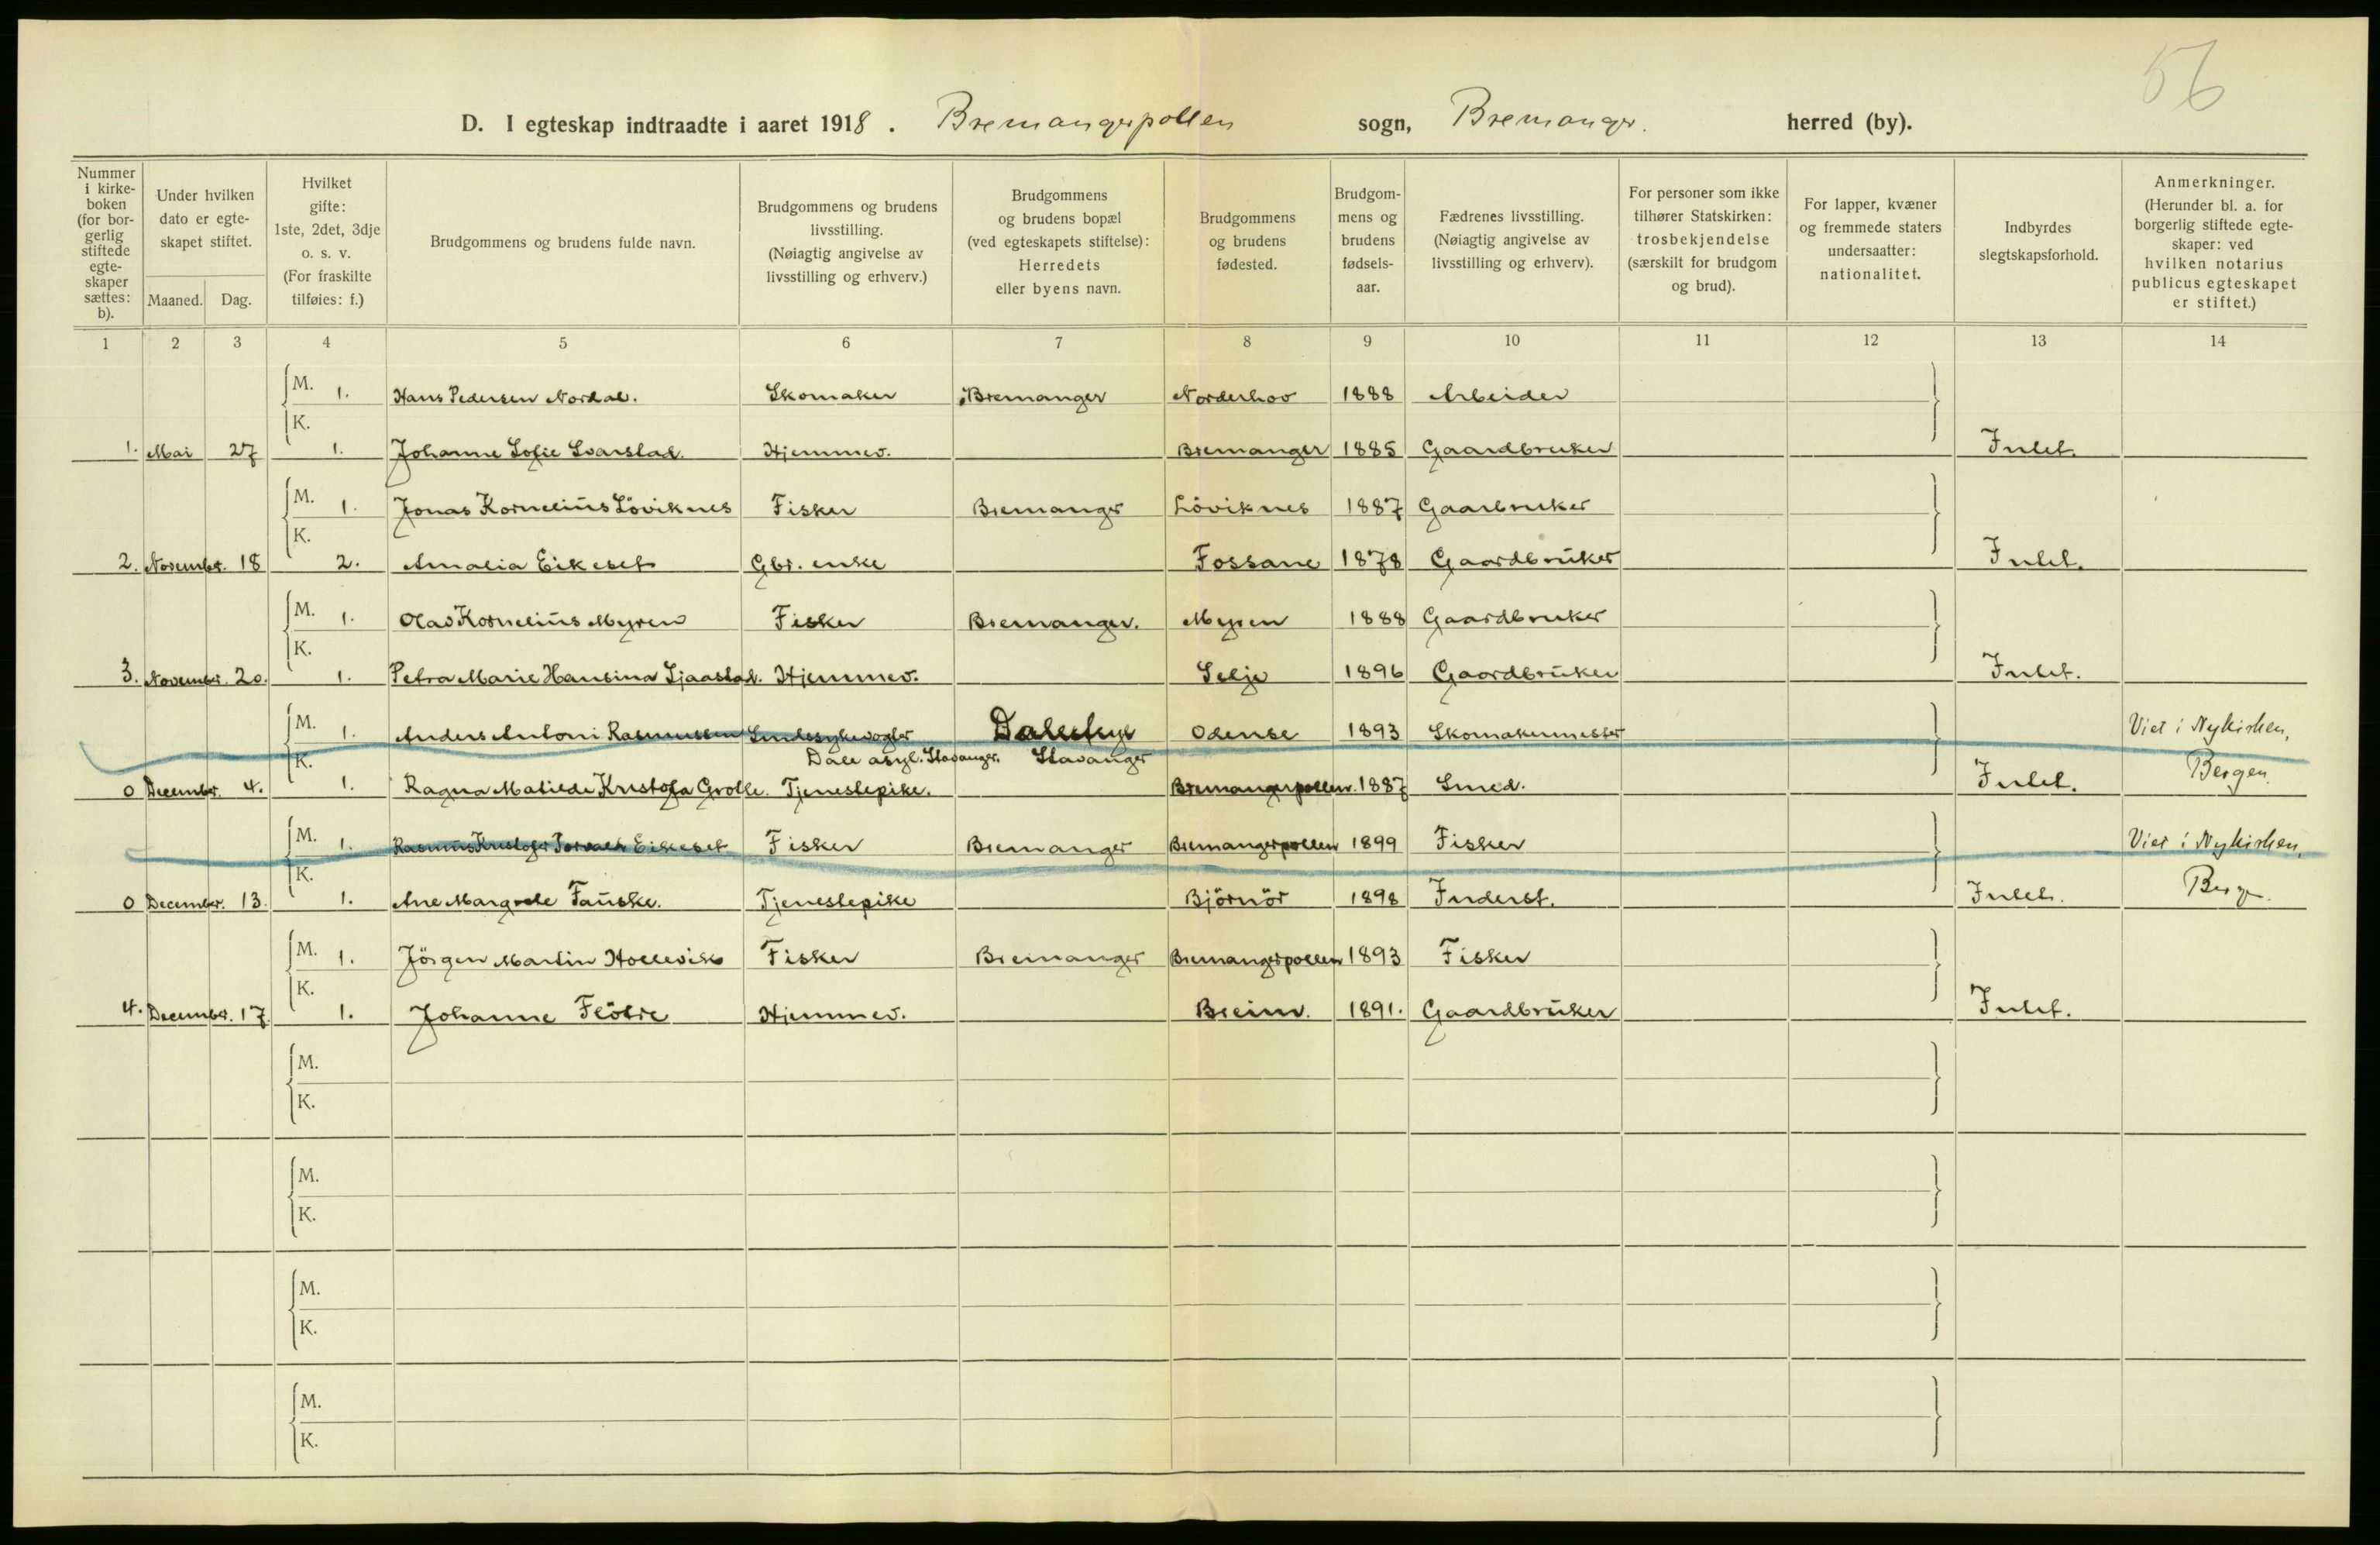 56
D. I egteskap indtraadte i aaret 1918. Bremangerpollen sogn, Bremanger. herred (by).
Nummer i kirke-boken (for bor-gerlig stiftede egte-skaper sættes: b).
Under hvilken dato er egte-skapet stiftet.
Maaned. Dag.
Hvilket gifte: 1ste, 2det, 3dje o. s. v. (For fraskilte tilføies: f.)
Brudgommens og brudens fulde navn.
Brudgommens og brudens livsstilling. (Nøiagtig angivelse av livsstilling og erhverv.)
Brudgommens og brudens bopæl (ved egteskapets stiftelse): Herredets eller byens navn.
Brudgommens og brudens fødested.
Brudgom-mens og brudens fødsels-aar.
Fædrenes livsstilling. (Nøiagtig angivelse av livsstilling og erhverv).
For personer som ikke tilhører Statskirken: trosbekjendelse (særskilt for brudgom og brud).
For lapper, kvæner og fremmede staters undersaatter: nationalitet.
Indbyrdes slegtskapsforhold.
Anmerkninger. (Herunder bl. a. for borgerlig stiftede egte-skaper: ved hvilken notarius publicus egteskapet er stiftet.)
1 2 3 4 5 6 7 8 9 10 11 12 13 14
M. 1. Hans Pedersen Nordal. Skomaker Bremanger Norderhov 1888 Arbeider
K.
1. Mai 27 1. Johanne Sofie Svarstad. Hjemmev. Bremanger 1885 Gaardbruker Intet.
M. 1. Jonas Kornelius Löviknes Fisker Bremanger Löviknes 1887 Gaarbruker
K.
2. November. 18 2. Amalia Eikeset Gbr. enke Fossane 1878 Gaardbruker Intet.
M. 1. Olav Kornelius Myren Fisker Bremanger. Myren 1888 Gaardbruker
K.
3. November. 20. 1. Petra Marie Hansina Sjaastad. Hjemmev. Selje 1896 Gaardbruker Intet.
M. 1. Anders Antoni Rasmussen Sindssykevogter Odense 1893 Skomakermester Viet i Nykirken,
K. Dale asyl. Stavanger. Stavanger
0 December. 4. 1. Ragna Matilde Kristofa Grotle. Tjenestepike. Bremangerpollen. 1887 Smed. Intet. Bergen.
M. 1. Rasmus Kristofer Torvald Eikeset Fisker Bremanger Bremangerpollen 1899 Fisker Viet i Nykirken,
K.
0 December. 13. 1. Ane Margrete Fauske. Tjenestepike Björnör 1898 Inderst. Intet. Berg.
M. 1. Jörgen Martin Hollevik Fisker Bremanger Bremangerpollen 1893 Fisker
K.
4. December. 17. 1. Johanne Flötre Hjemmev. Breim. 1891. Gaardbruker Intet.
M.
K.
M.
K.
M.
K.
M.
K.